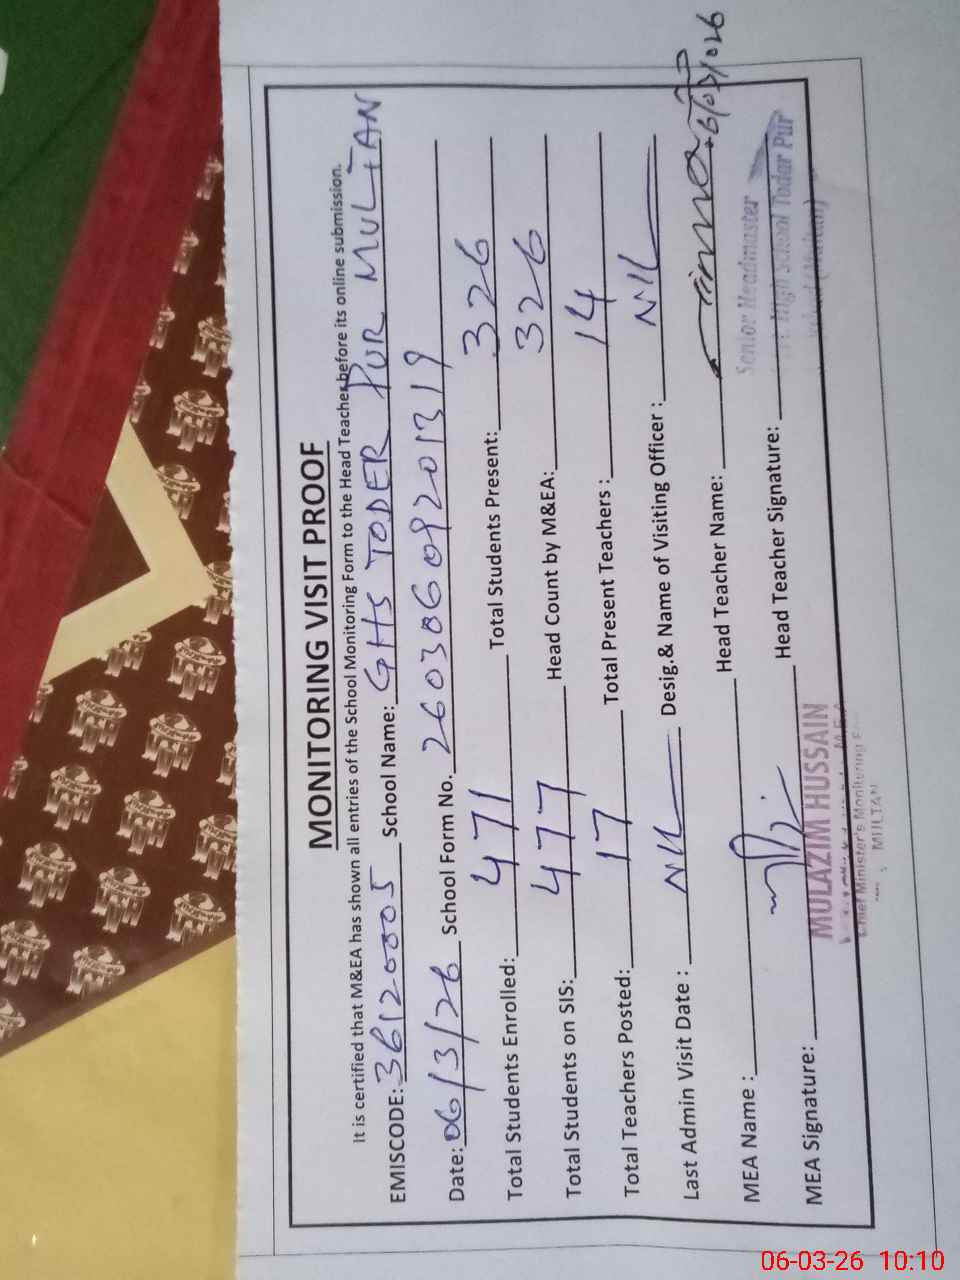 MONITORING VISIT PROOF
It is certified that M&EA has shown all entries of the School Monitoring Form to the Head Teacher before its online submission.
EMISCODE: 36120005 School Name: GHS TODER PUR MULTAN
Date: 06/3/26 School Form No. 26030609201319
Total Students Enrolled: 471 Total Students Present: 326
Total Students on SIS: 477 Head Count by M&EA: 326
Total Teachers Posted: 17 Total Present Teachers : 14
Last Admin Visit Date : NIL Desig.& Name of Visiting Officer : NIL
MEA Name : Head Teacher Name:
MEA Signature: Head Teacher Signature:
MULAZIM HUSSAIN
Chief Minister's Monitoring
MULTAN
Senior Headmaster
High School Todar Pur
(Multan)
06-03-26 10:10